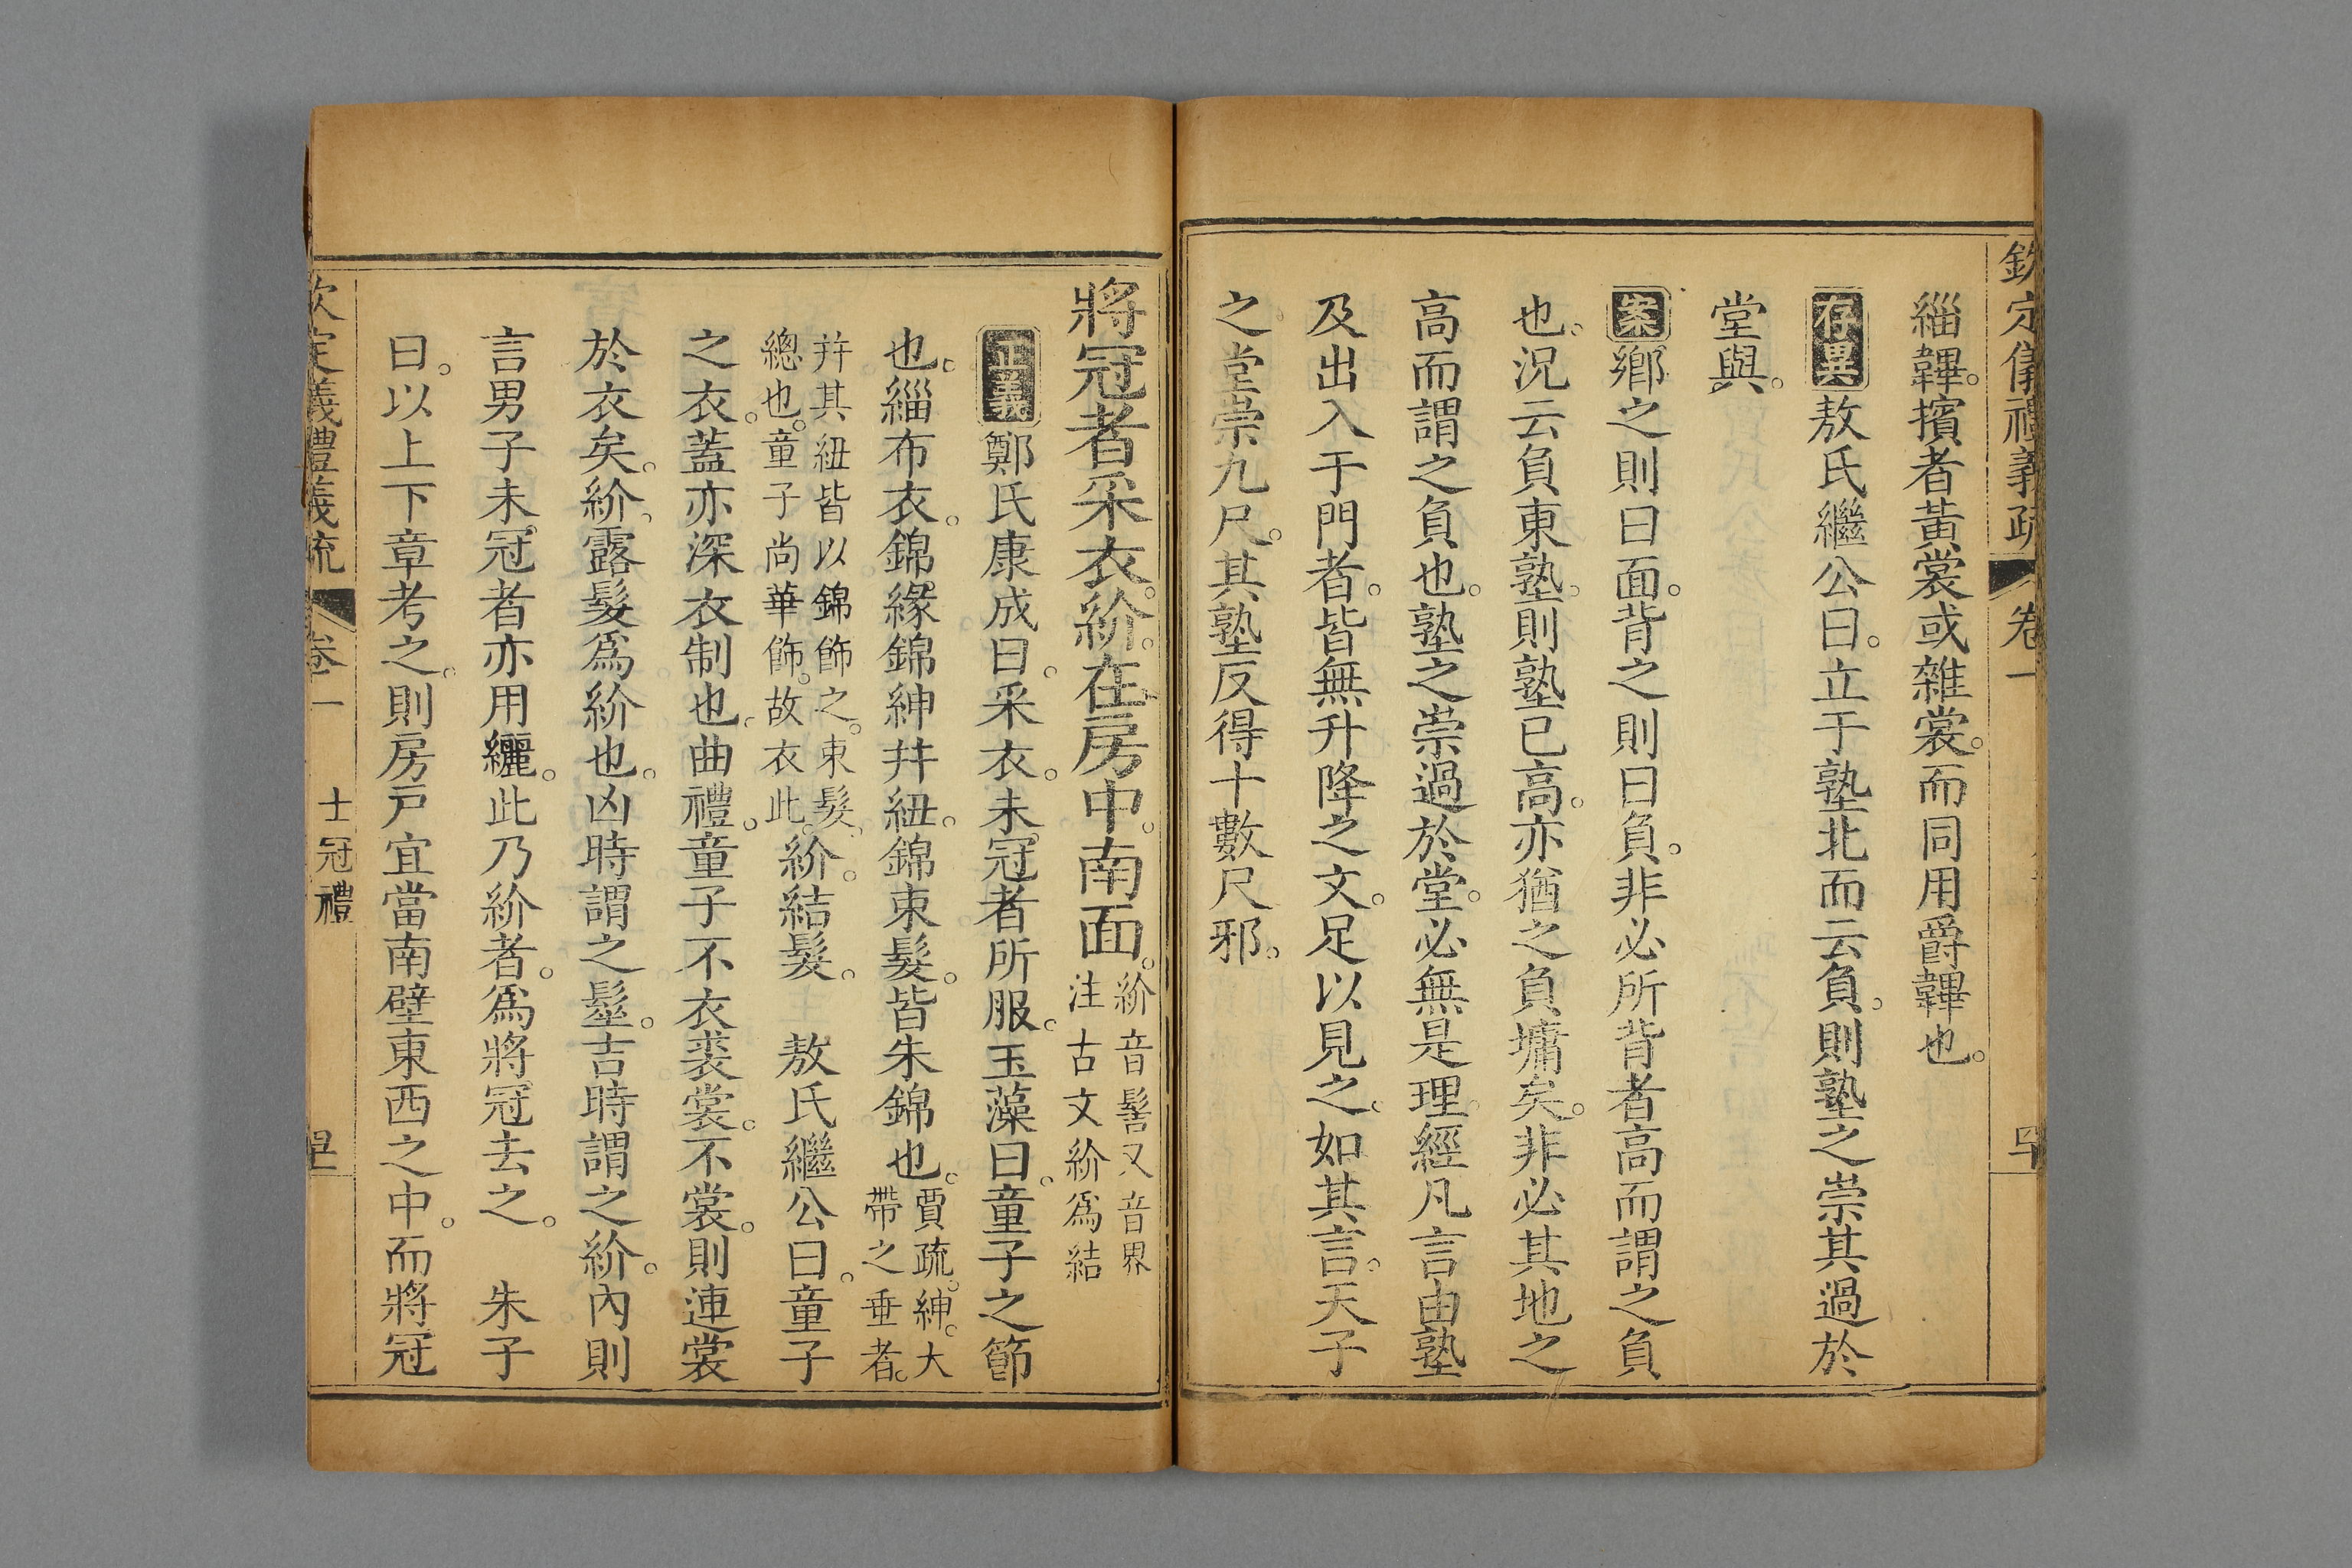 欽定儀禮義疏 卷一 四十
緇韠。擯者黃裳或雜裳。而同用爵韠也。
存異敖氏繼公曰。立于塾北而云負。則塾之崇其過於
堂與。
案鄉之則曰面。背之則曰負。非必所背者高而謂之負
也。況云負東塾。則塾已高。亦猶之負墉矣。非必其地之
高而謂之負也。塾之崇過於堂。必無是理。經凡言由塾
及出入于門者。皆無升降之文。足以見之。如其言。天子
之堂崇九尺。其塾反得十數尺邪。
將冠者采衣。紒。在房中。南面。紒音髻又音界
注古文紒爲結
正義鄭氏康成曰。采衣。未冠者所服。玉藻曰。童子之節
也。緇布衣。錦緣錦紳幷紐。錦束髮。皆朱錦也。賈疏。紳。大
帶之垂者。
幷其紐皆以錦飾之。束髮、
總也。童子尚華飾。故衣此。紒。結髮。 敖氏繼公曰。童子
之衣。蓋亦深衣制也。曲禮。童子不衣裘裳。不裳。則連裳
於衣矣。紒、露髮爲紒也。凶時謂之髽。吉時謂之紒。內則
言男子未冠者亦用纚。此乃紒者。爲將冠去之。 朱子
曰。以上下章考之。則房戸宜當南壁東西之中。而將冠
欽定義禮義疏 卷一 士冠禮